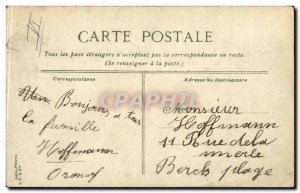 CARTE POSTALE
Tous les pays étrangers n'acceptent pas la correspondance au recto.
(Se renseigner à la poste.)
Correspondance
Adresse du destinataire
Bonjour à tous
la famille
Hoffmann
Monsieur
Hoffmann
11 Rue de la
Berck plage
CPAPHIL